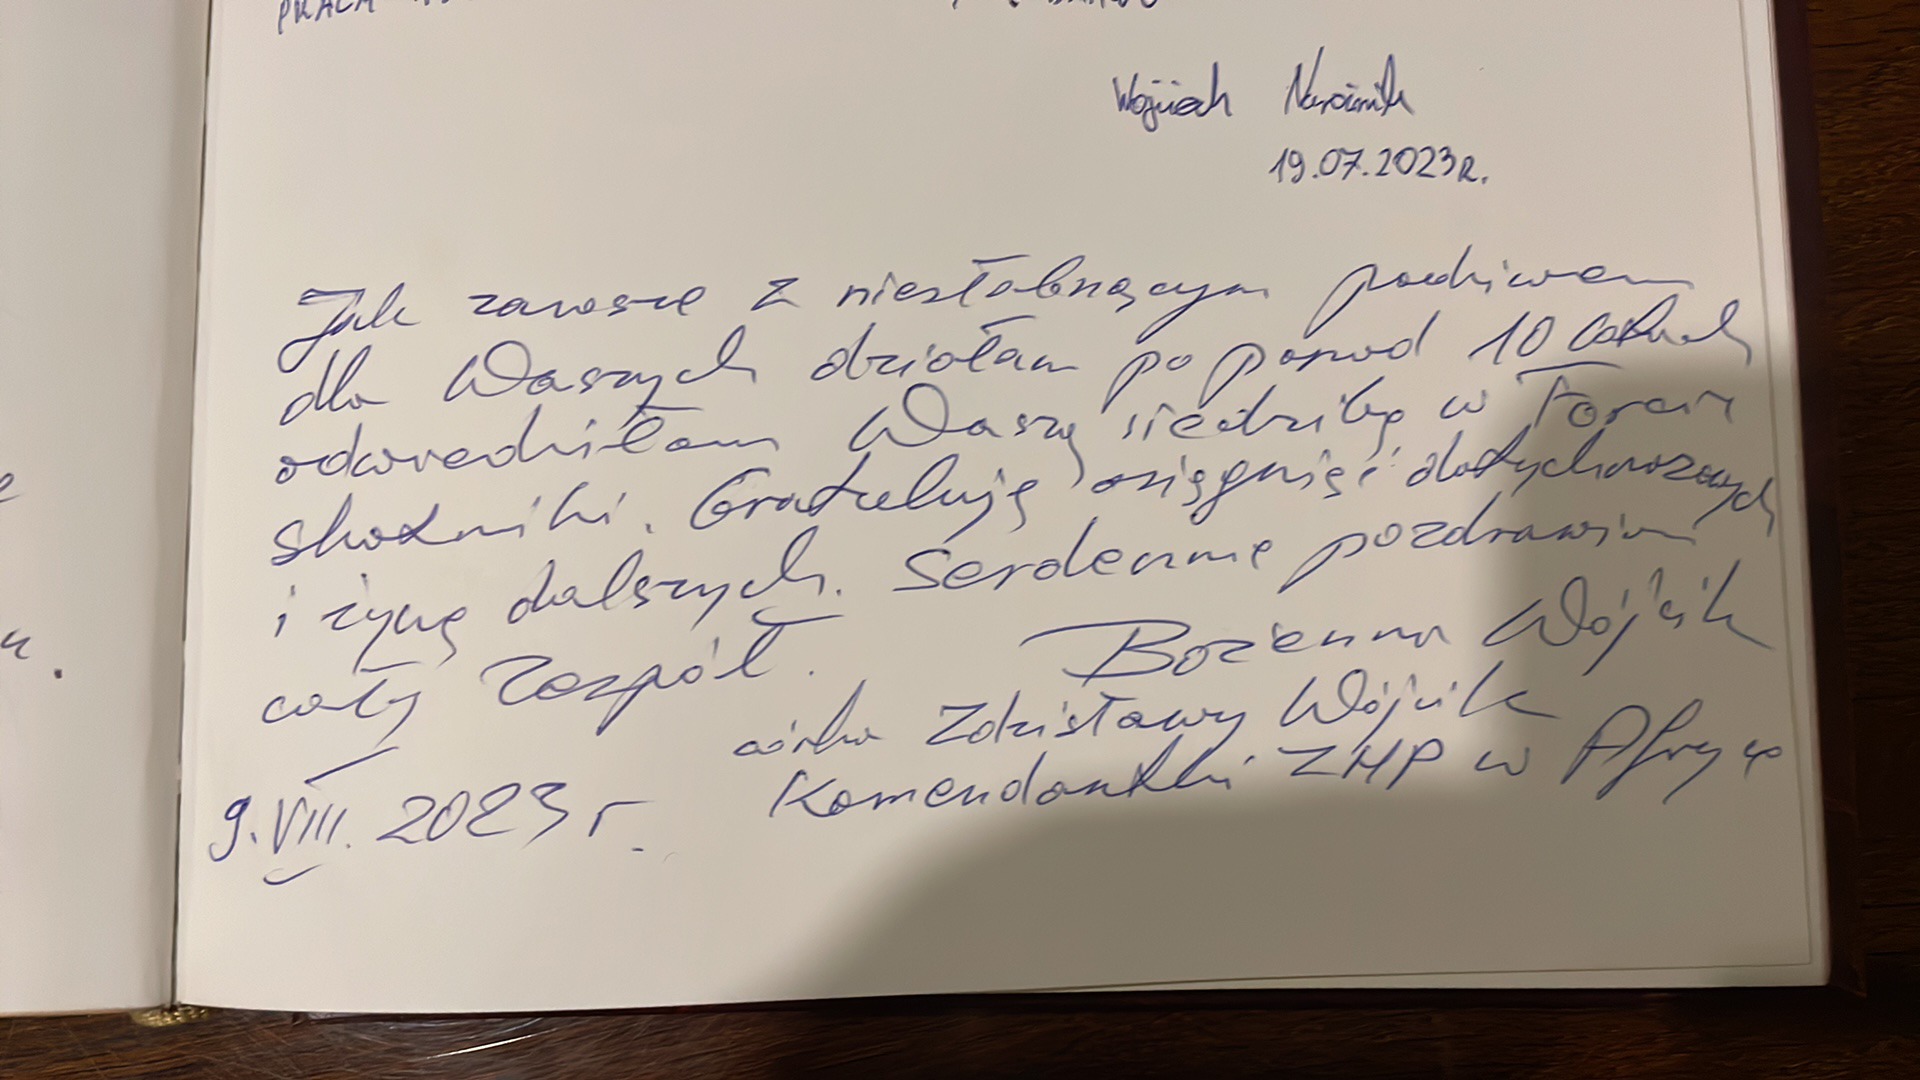 Wojciech
19.07.2023R.
Jak zawsze z niesłabnącym podziwem
dla Waszych działań po ponad 10 latach
odwiedziłam Waszą siedzibę w Forcie
Skotniki. Gratuluję osiągnięć dotychczasowych
i życzę dalszych. Serdecznie pozdrawiam
cały Zespół.
Bożenna Wójcik
córka Zdzisławy Wójcik
Komendantki ZHP w Afryce
9.VIII.2023 r.